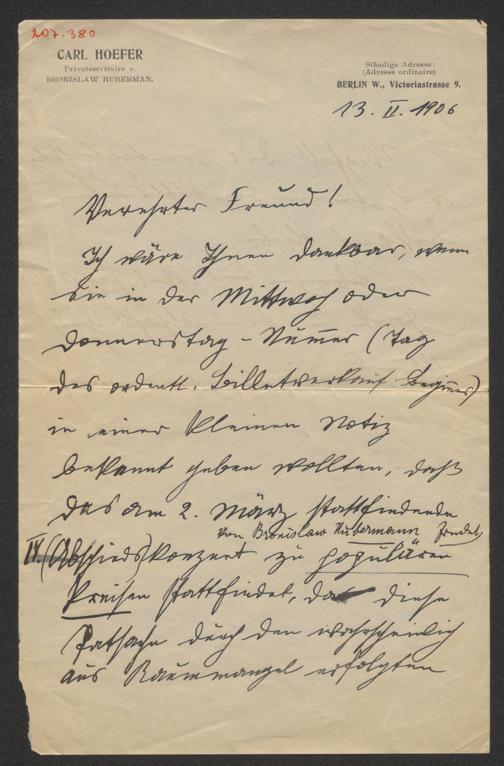 207.380
CARL HOEFER
Privatsecrétaire v.
BRONISLAW HUBERMAN.
Ständige Adresse:
(Adresse ordinaire)
BERLIN W., Victoriastrasse 9.
13. II. 1906
Verehrter Freund!
Ich wäre Ihnen dankbar, wenn
Sie in der Mittwoch oder
Donnerstag-Nummer (Tag
des ordentl. Billetverkauf Beginnes)
in einer kleinen Notiz
bekannt geben wollten, daß
das am 2. März stattfindende
von Bronislaw Hubermann
IV. (Abschieds) Konzert zu populären
Preisen stattfindet, da diese
Tatsache durch den wahrscheinlich
aus Raummangel erfolgten